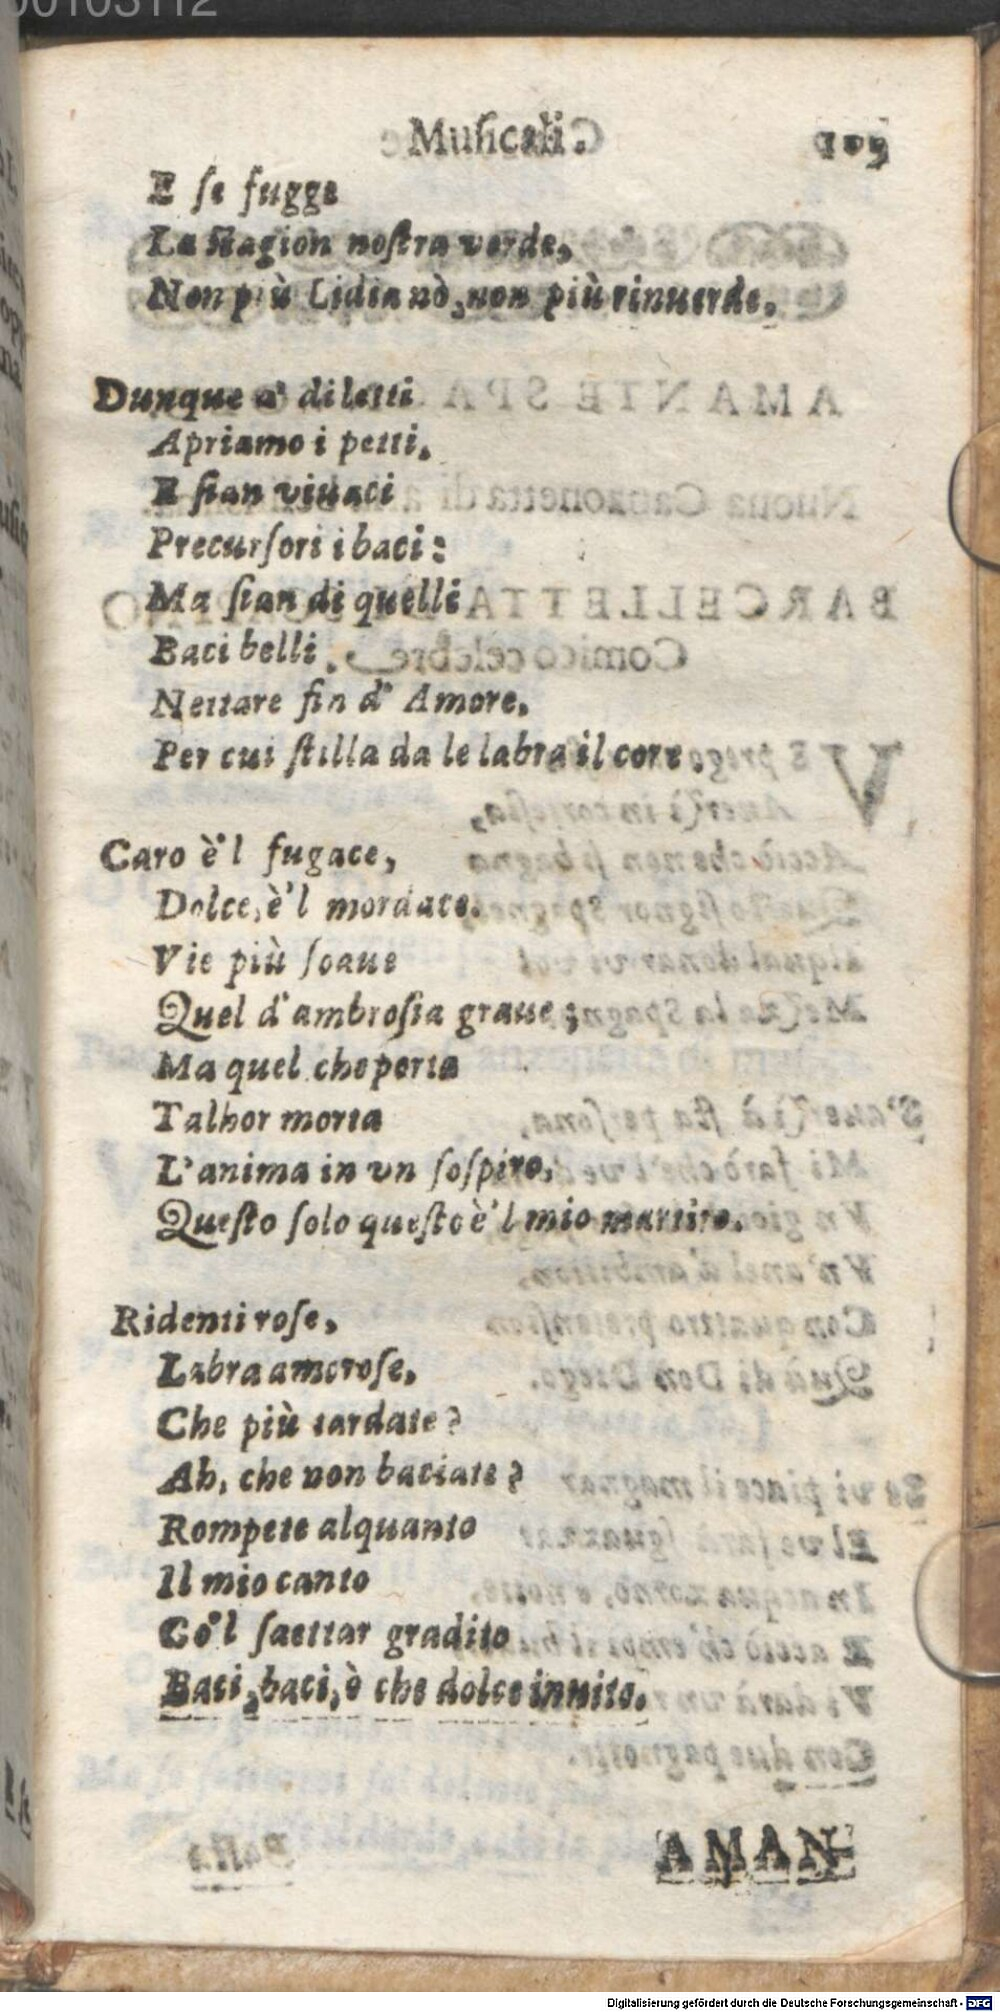 00103112
Muſicali.
E ſe fugge
La ſtagion noſtra verde,
Non più Lidia nò, non più rinuerde.
Dunque a' diletti
Apriamo i petti,
E ſian viuaci
Precurſori i baci:
Ma ſian di quelli
Baci belli.
Nettare fin d' Amore,
Per cui ſtilla da le labra il core.
Caro è'l fugace,
Dolce, è'l mordace.
Vie più ſoaue
Quel d'ambroſia graue;
Ma quel che porta
Talhor morta
L'anima in vn ſoſpiro,
Queſto ſolo queſto è'l mio martiro.
Ridenti roſe,
Labra amoroſe,
Che più tardate?
Ah, che non baciate?
Rompete alquanto
Il mio canto
Co'l ſaettar gradito
Baci, baci, ò che dolce inuito.
AMAN-
Digitalisierung gefördert durch die Deutsche Forschungsgemeinschaft - DFG